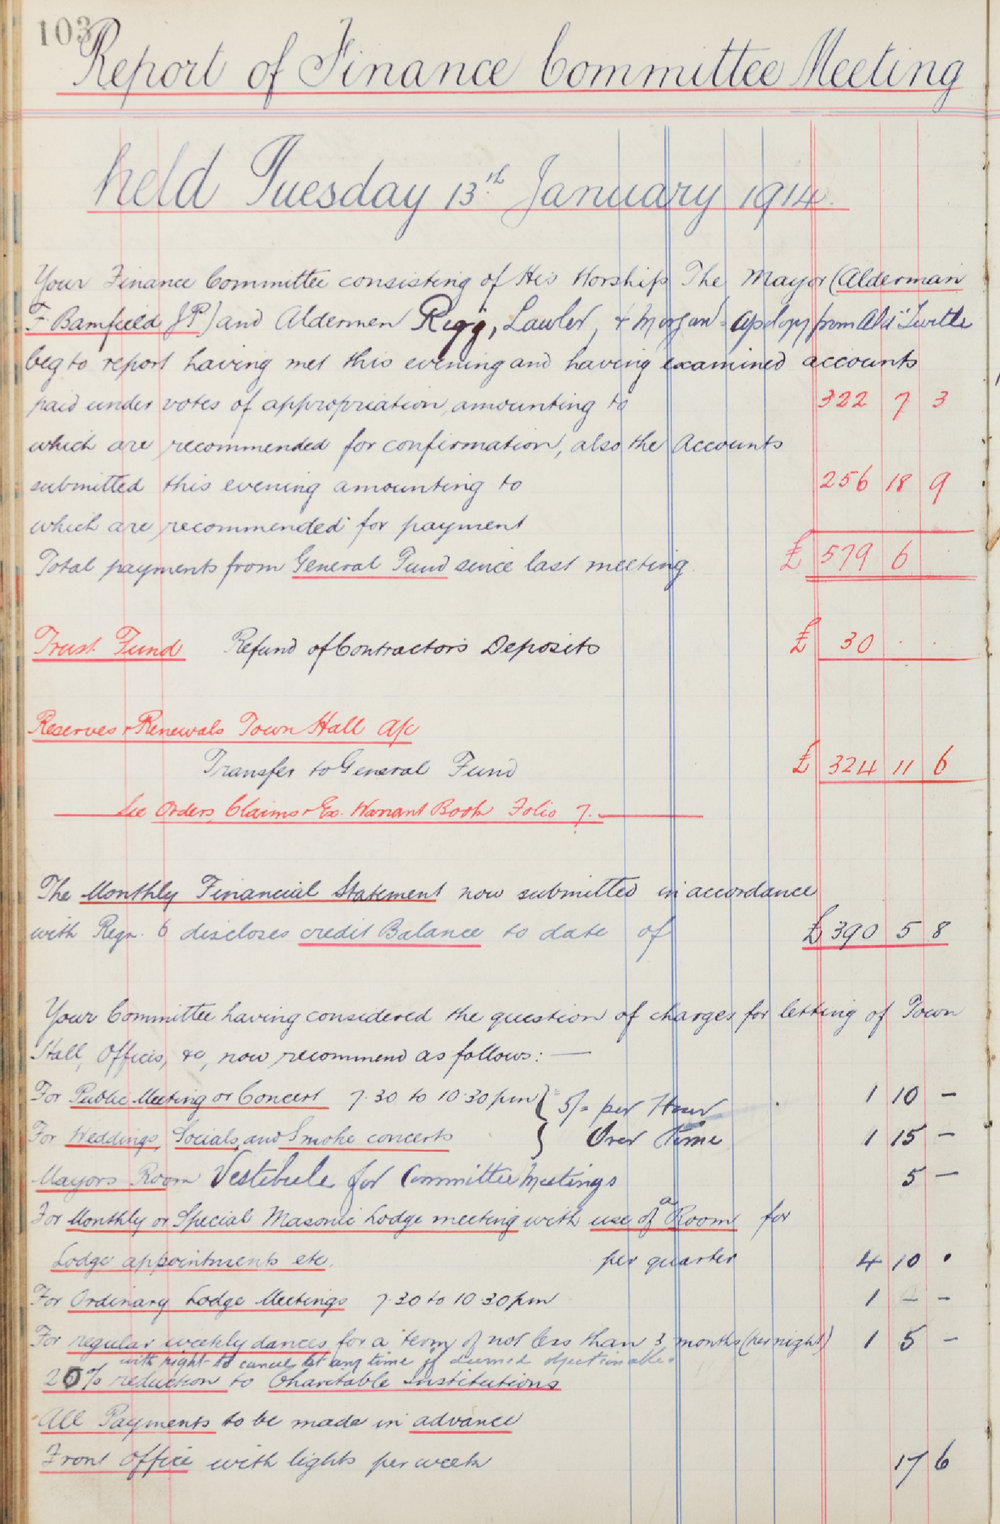 103
Report of Finance Committee Meeting
held Tuesday 13th January 1914.
Your Finance Committee consisting of His Worship The Mayor (Alderman
F Bamfield J P) and Aldermen Rigg, Lawler, & Morgan - apology from Ald Twittle
beg to report having met this evening and having examined accounts
paid under votes of appropriation, amounting to 322 7 3
which are recommended for confirmation, also the Accounts
submitted this evening amounting to 256 18 9
which are recommended for payment
Total payments from General Fund since last meeting. £ 579 6
Trust Fund Refund of Contractors Deposits £ 30 . .
Reserves & Renewals Town Hall A/c
Transfer to General Fund £ 324 11 6
See Orders, Claims & Ex. Warrant Book Folio 7.
The Monthly Financial Statement now submitted in accordance
with Regn. 6 discloses credit Balance to date of £390 5 8
Your Committee having considered the question of charges for letting of Town
Hall, Offices, &c, now recommend as follows: —
For Public Meeting or Concert 7.30 to 10.30 pm } 5/- per Hour 1 10 -
For Weddings, Socials, and Smoke concerts } Over Time 1 15 -
Mayors Room Vestibule for Committee Meetings 5 -
For Monthly or Special Masonic Lodge meeting with use of a Room for
Lodge appointments etc. per quarter 4 10 .
For Ordinary Lodge Meetings 7.30 to 10.30 pm 1 - -
For regular weekly dances for a term of not less than 3 months (per night) 1 5 -
with right to cancel at any time if deemed objectionable
20% reduction to Charitable Institutions
All Payments to be made in advance
Front Office with lights per week 17 6